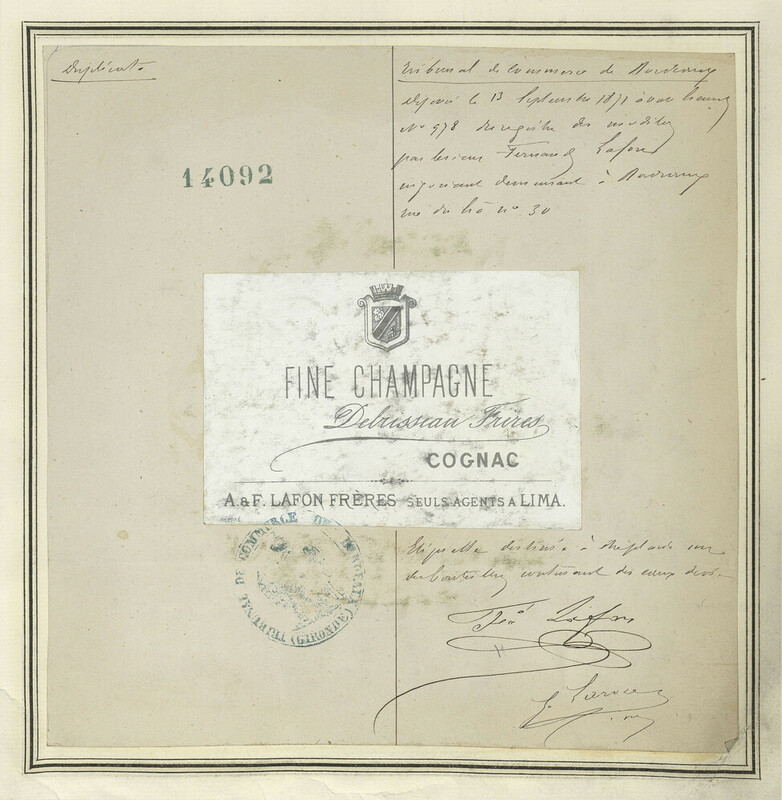 Duplicata
14092
Tribunal de Commerce de Bordeaux
Déposé le 13 Septembre 1871 à
Nº 978 du registre des modèles
par le sieur Fernand Lafon
négociant demeurant à Bordeaux
rue du Hâ nº 30
FINE CHAMPAGNE
Debrisseau Frères
COGNAC
A. & F. LAFON FRÈRES SEULS AGENTS A LIMA.
TRIBUNAL DE COMMERCE DE BORDEAUX (GIRONDE)
Etiquette destinée à être placée sur
des bouteilles contenant des eaux de vie
Lafon